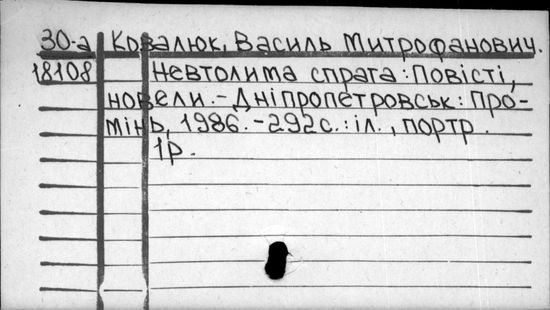 30-а Ковалюк, Василь Митрофанович.
18108 Невтолима спрага: Повісті,
новели.-Дніпропетровськ: Про-
мінь, 1986.-292с.:іл., портр.
1р.